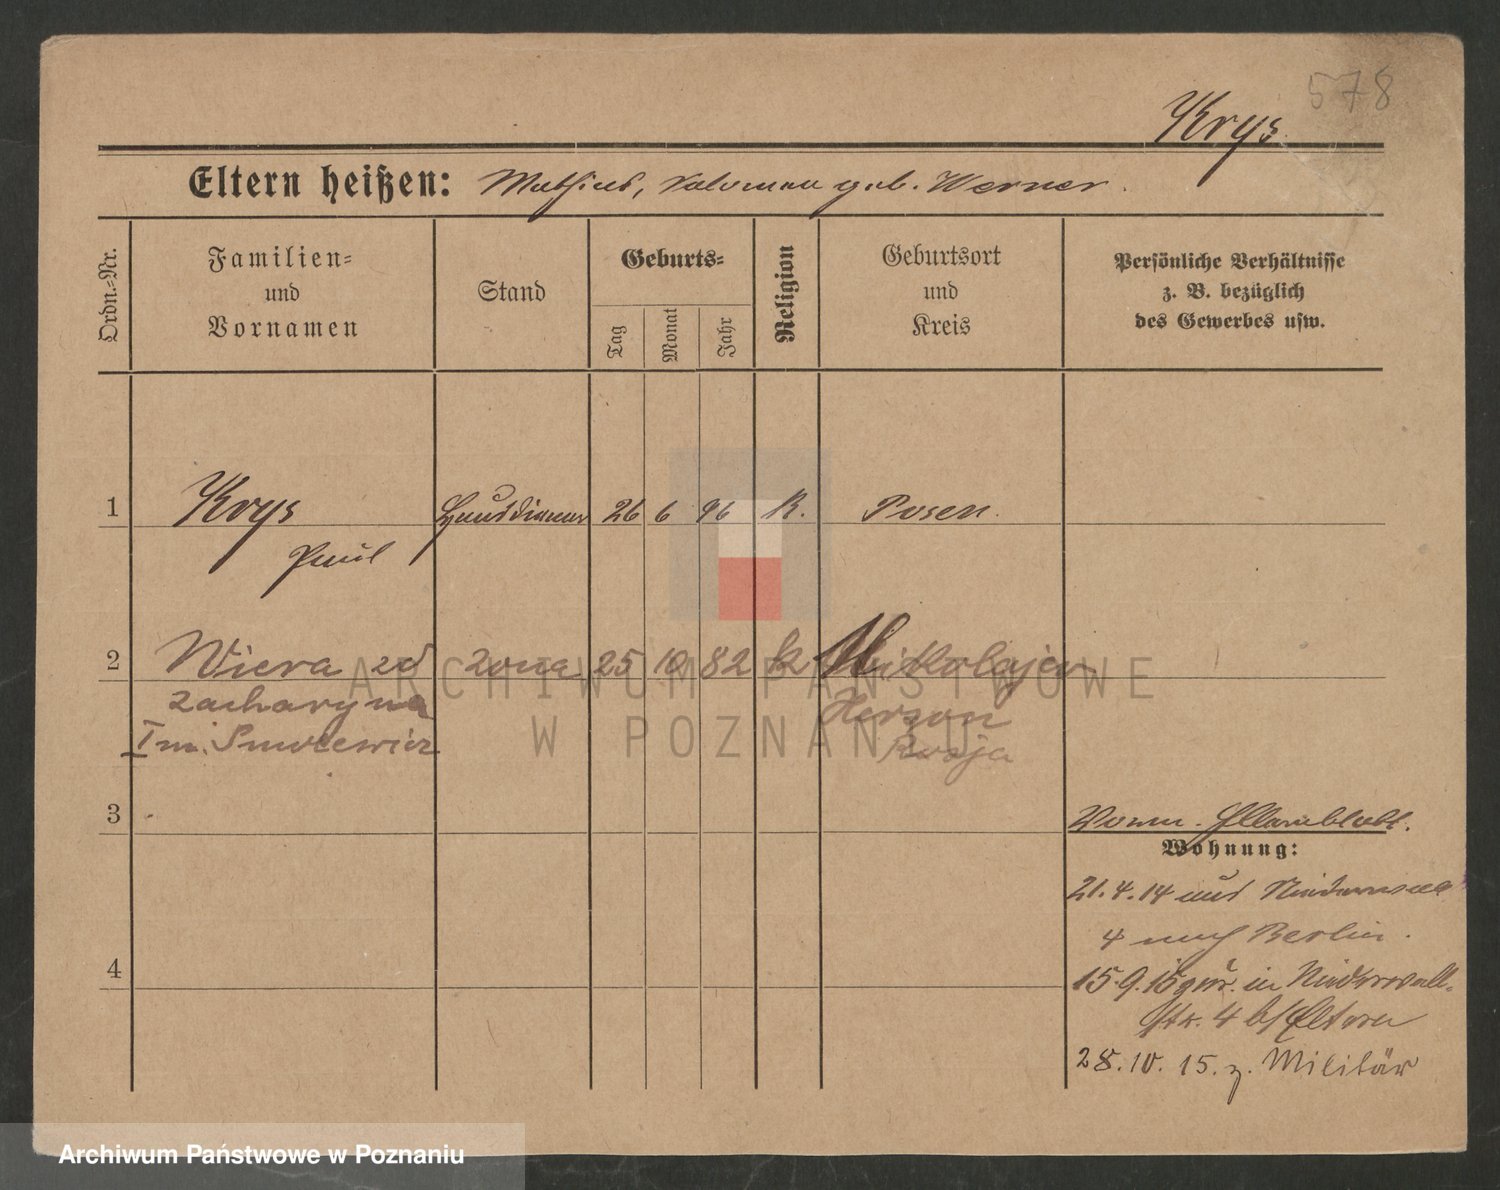 578
Krys
Eltern heißen: Mathias, Salomea geb. Werner.
Ordn.-Nr.
Familien-
und
Vornamen
Stand
Geburts-
Tag
Monat
Jahr
Religion
Geburtsort
und
Kreis
Persönliche Verhältnisse
z. B. bezüglich
des Gewerbes usw.
1 Krys Hausdiener 26 6 96 K. Posen.
Paul
2 Wiera zd żona 25 10 82 k Nikolajew
Zacharyna Herson
I m. Rosja
3
Wohnung:
21.4.14 aus
4 nach Berlin.
15.9.15 in Niederwall-
str. 4 b/Eltern
4
28.10.15. z. Militär
ARCHIWUM PAŃSTWOWE
W POZNANIU
Archiwum Państwowe w Poznaniu